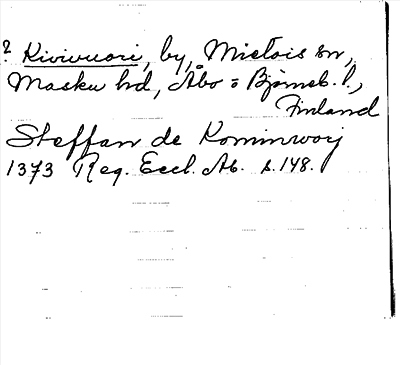 ? Kivivuori, by, Mietois sn,
Masku hd, Åbo o Björneb. l.,
Finland
Steffan de Kominworj
1373 Reg. Eccl. Ab. s. 148.